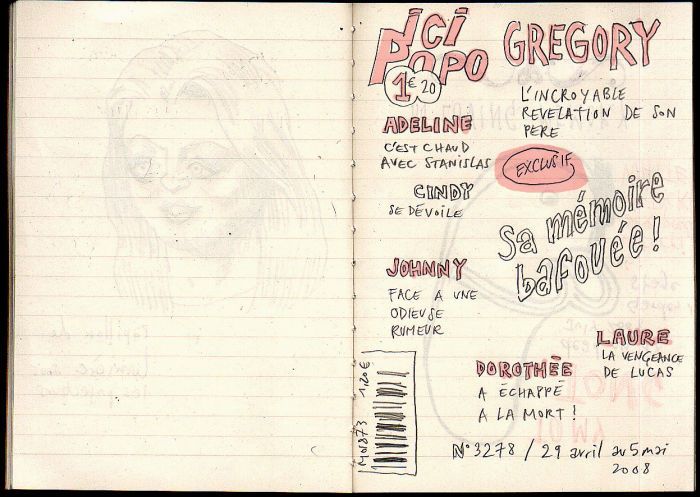 ici
POPO
1€20
GREGORY
L'INCROYABLE
REVELATION DE SON
PERE
ADELINE
C'EST CHAUD
AVEC STANISLAS
EXCLUSIF
CINDY
SE DÉVOILE
Sa mémoire
bafouée !
JOHNNY
FACE A UNE
ODIEUSE
RUMEUR
LAURE
LA VENGEANCE
DE LUCAS
DOROTHÉE
A ÉCHAPPÉ
A LA MORT !
M01873 1,20€
N°3278 / 29 avril au 5 mai
2008